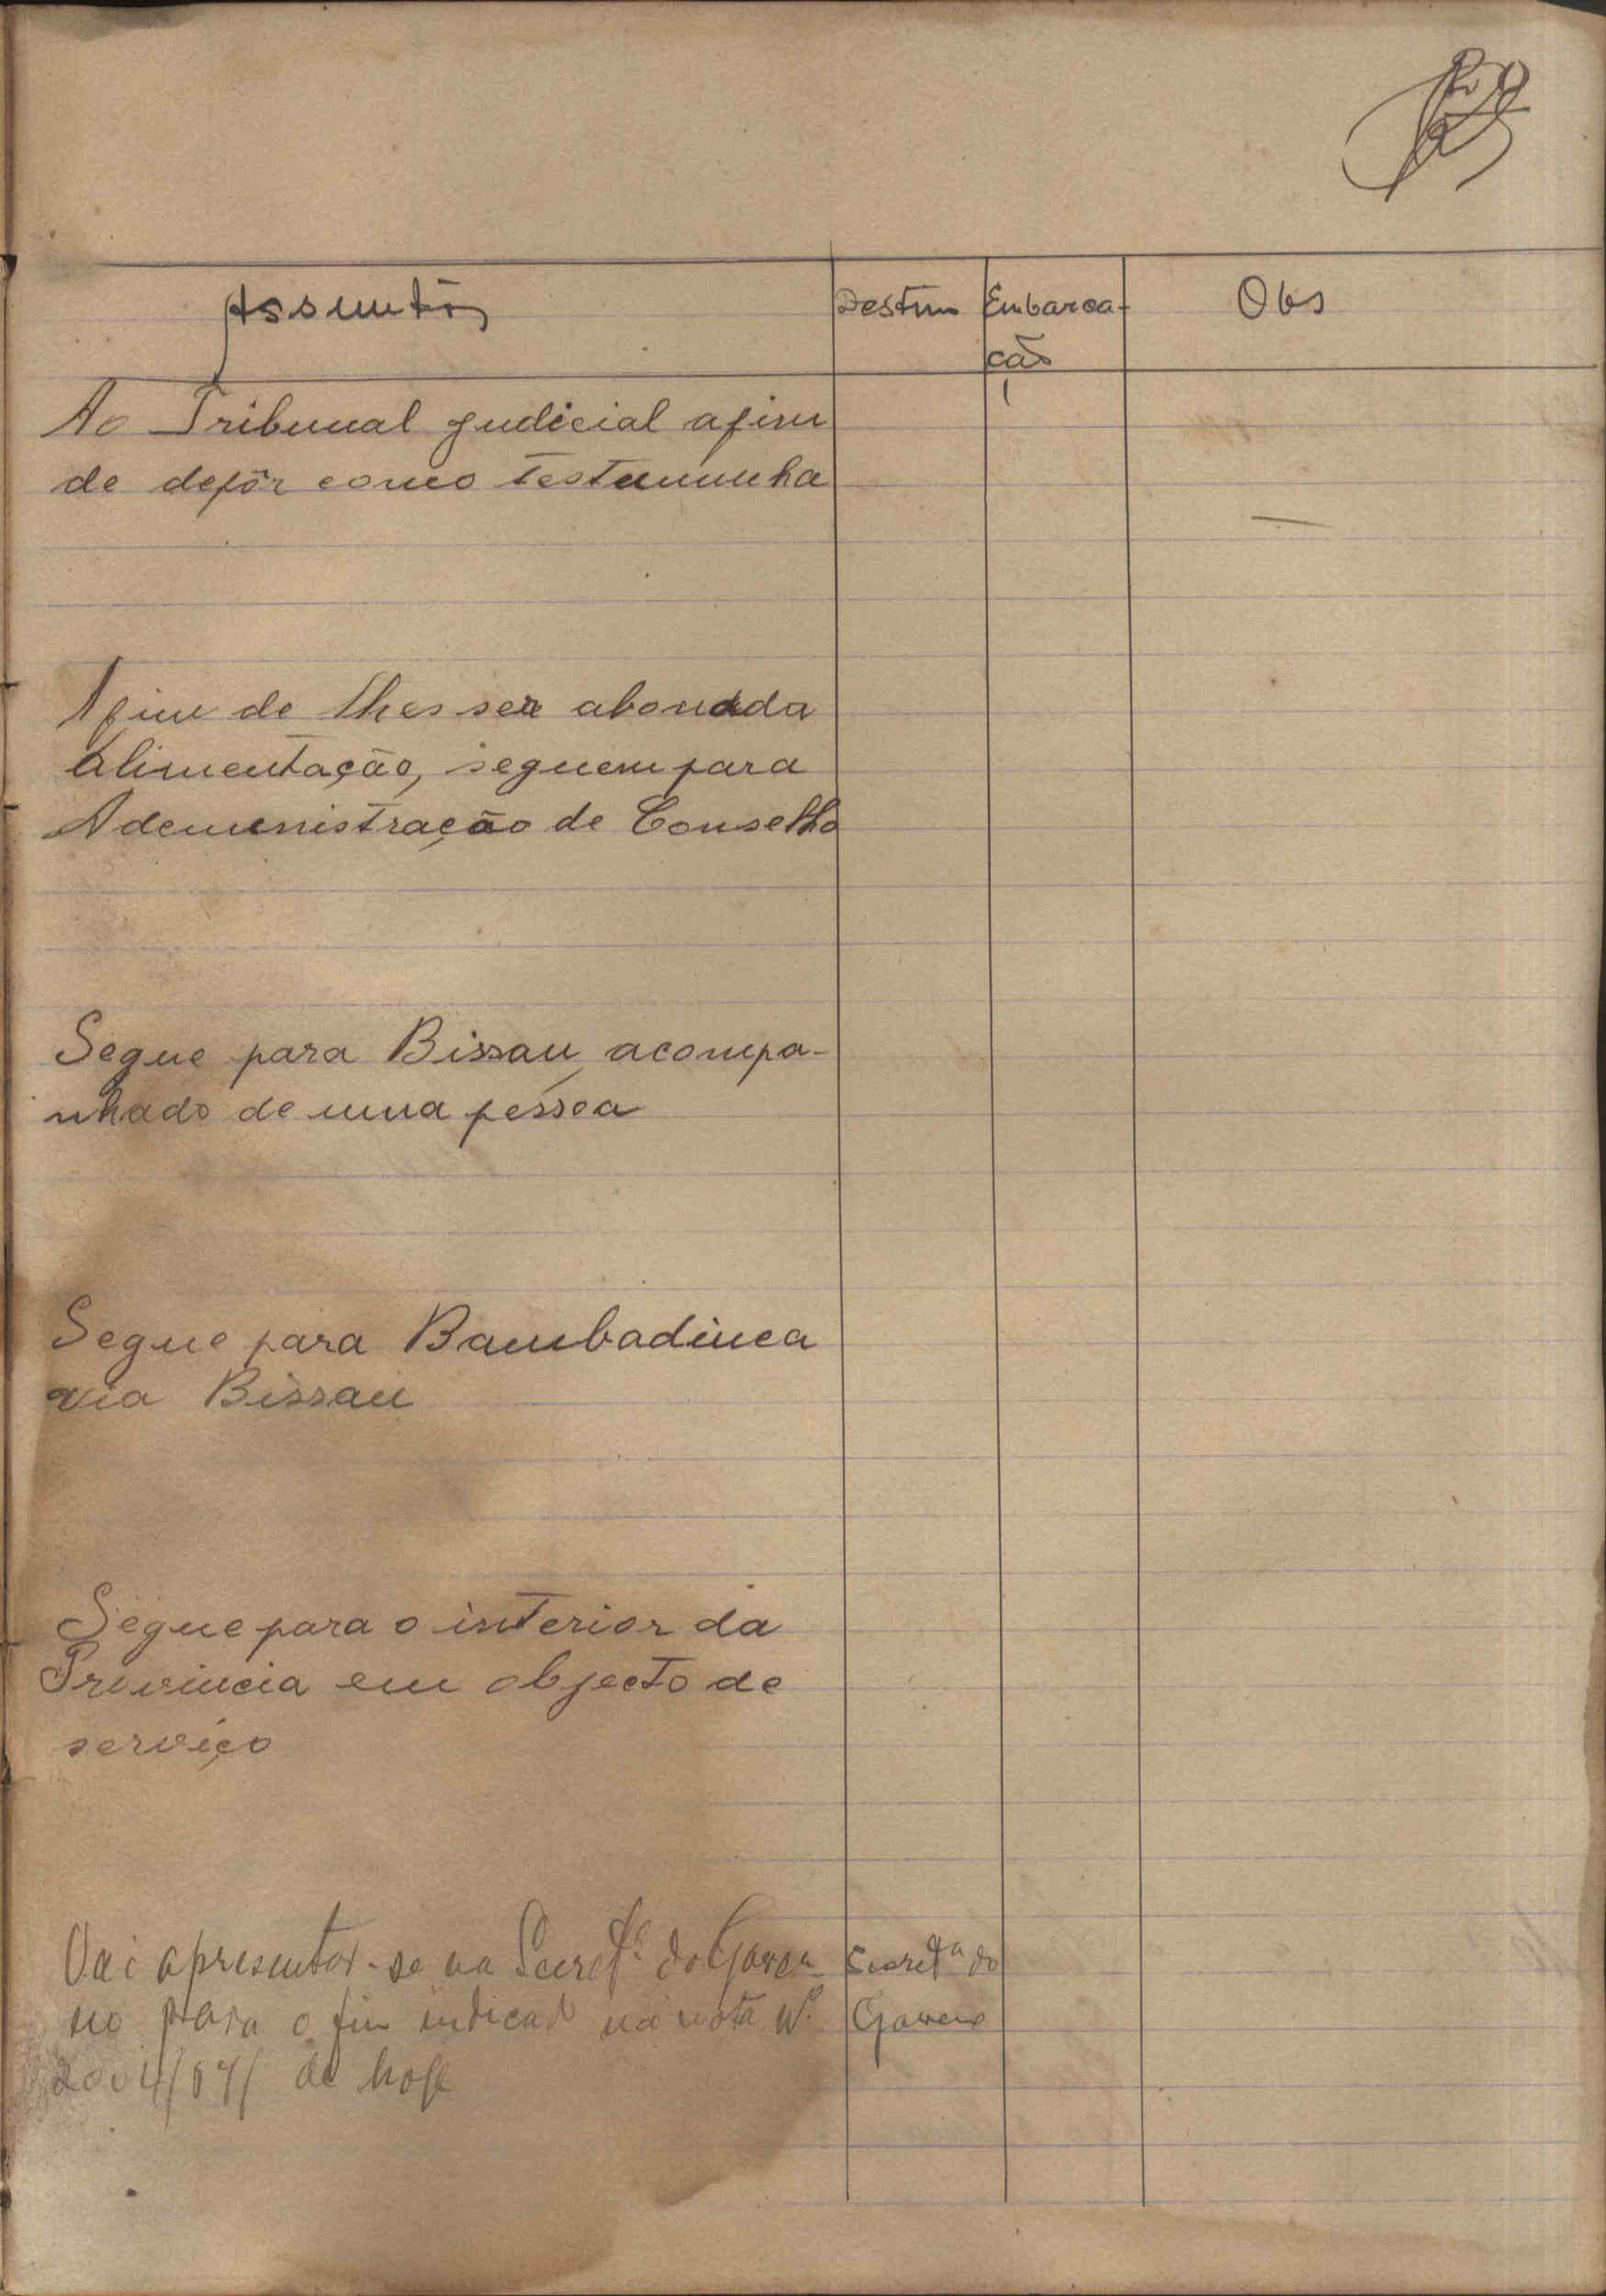 Assuntos
Destino
Embarca-
ção
Obs
Ao Tribunal Judicial afim
de depôr como testemunha
Afim de lhes ser abonada
alimentação, seguem para
Ademenistração de Conselho
Segue para Bissau, acompa-
nhado de uma péssoa
Segue para Bambadinca
via Bissau
Segue para o interior da
Provincia em objecto de
serviço
Vai apresentar-se na Secretª do Gover-
no para o fim indicado na nota Nº
de hoje
Secretª do
Governo